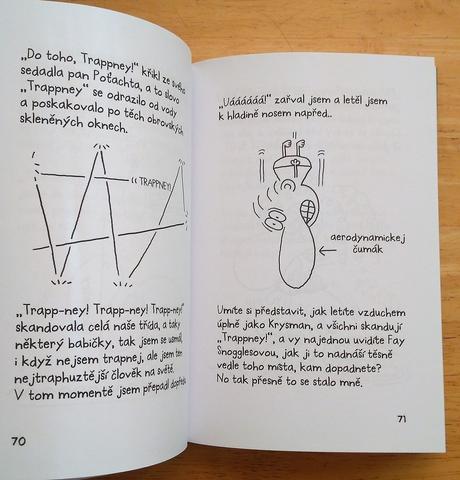 „Do toho, Trappney!“ křikl ze svého
sedadla pan Poťachta, a to slovo
„Trappney“ se odrazilo od vody
a poskakovalo po těch obrovských
skleněných oknech.
TRAPPNEY!
„Trapp-ney! Trapp-ney! Trapp-ney!“
skandovala celá naše třída, a taky
některý babičky, tak jsem se usmál,
i když nejsem trapnej, ale jsem ten
nejtraphuztější člověk na světě.
V tom momentě jsem přepadl dopředu
70
„Uáááááá!“ zařval jsem a letěl jsem
k hladině nosem napřed..
aerodynamickej
čumák
Umíte si představit, jak letíte vzduchem
úplně jako Krysman, a všichni skandují
„Trappney!“, a vy najednou uvidíte Fay
Snogglesovou, jak ji to nadnáší těsně
vedle toho místa, kam dopadnete?
No tak přesně to se stalo mně.
71